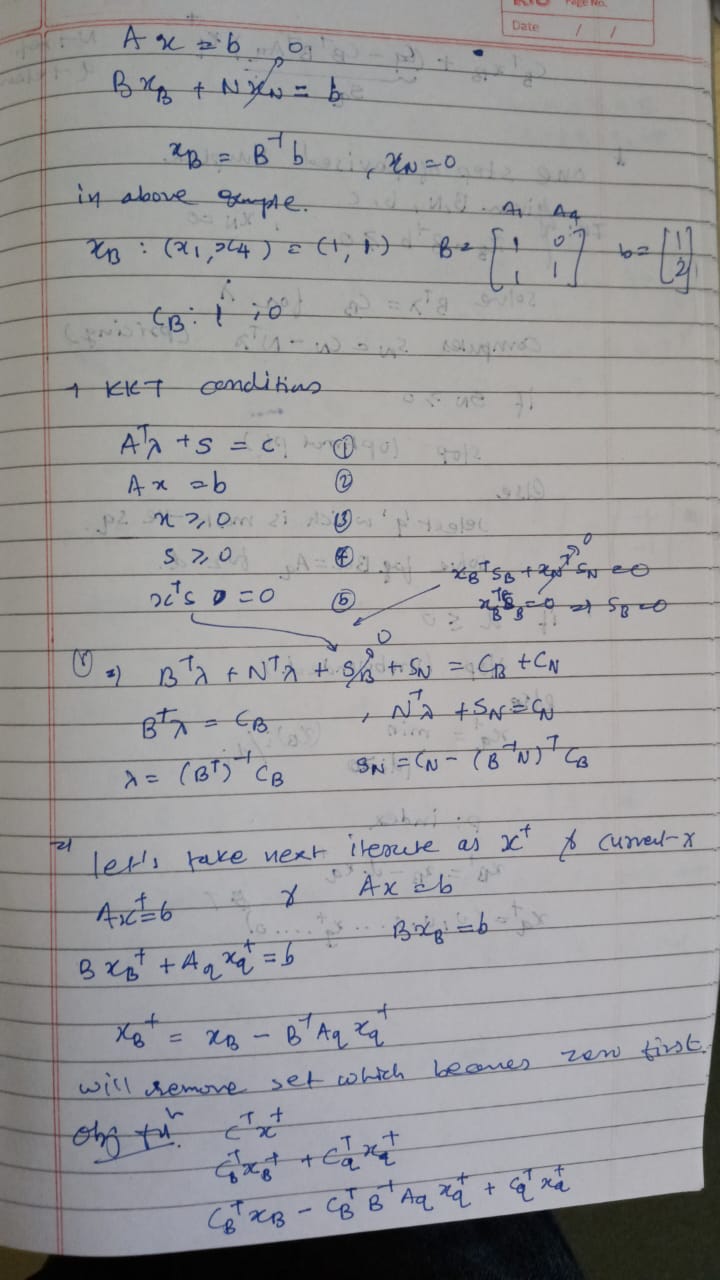 Page No.
Date / /
Ax = b
Bx_B + Nx_N = b 0
x_B = B⁻¹b , x_N = 0
in above example.
x_B : (x₁, x₄) = (1, 1) B = [1 0; 1 1] A₁ A₄ b = [1; 2]
C_B : 1 ; 0
→ KKT conditions
Aᵀλ + s = c ①
Ax = b ②
x ≥ 0 ③
s ≥ 0 ④
xᵀs = 0 ⑤ x_Bᵀ s_B + x_Nᵀ s_N = 0 0
x_Bᵀ s_B = 0 ⇒ s_B = 0
① ⇒ Bᵀλ + Nᵀλ + s_B + s_N = C_B + C_N 0
Bᵀλ = C_B , Nᵀλ + s_N = C_N
λ = (Bᵀ)⁻¹ C_B s_N = C_N - (B⁻¹N)ᵀ C_B
let's take next iterate as x⁺ & current - x
Ax⁺ = b & Ax = b
Bx_B⁺ + A_q x_q⁺ = b Bx_B = b
x_B⁺ = x_B - B⁻¹ A_q x_q⁺
will remove set which becomes zero first.
Obj fuⁿ. Cᵀx⁺
C_Bᵀ x_B⁺ + C_qᵀ x_q⁺
C_Bᵀ x_B - C_Bᵀ B⁻¹ A_q x_q⁺ + C_qᵀ x_q⁺